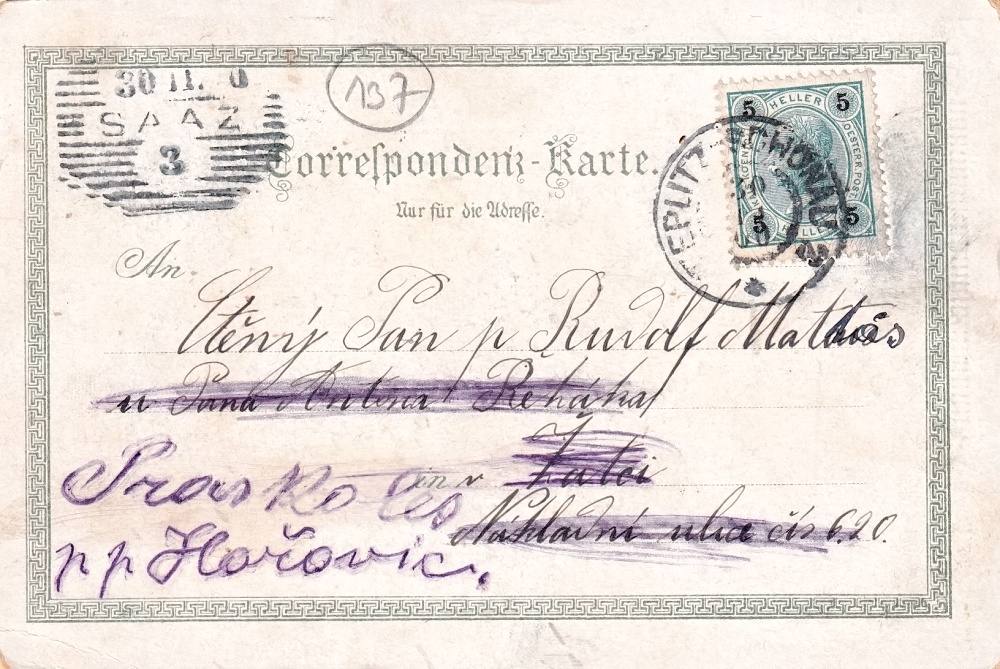 30 11. 0
SAAZ
3
137
Correspondenz-Karte.
Nur für die Adresse.
5 HELLER 5
OESTERR.POST
5 HELLER 5
TEPLITZ SCHÖNAU 2
An
Ctěný Pan p Rudolf Mathás
u Pana Antona Řeháka
v Žatci
Nákladní ulice čís 620.
Praskoles
p p Hořovic.